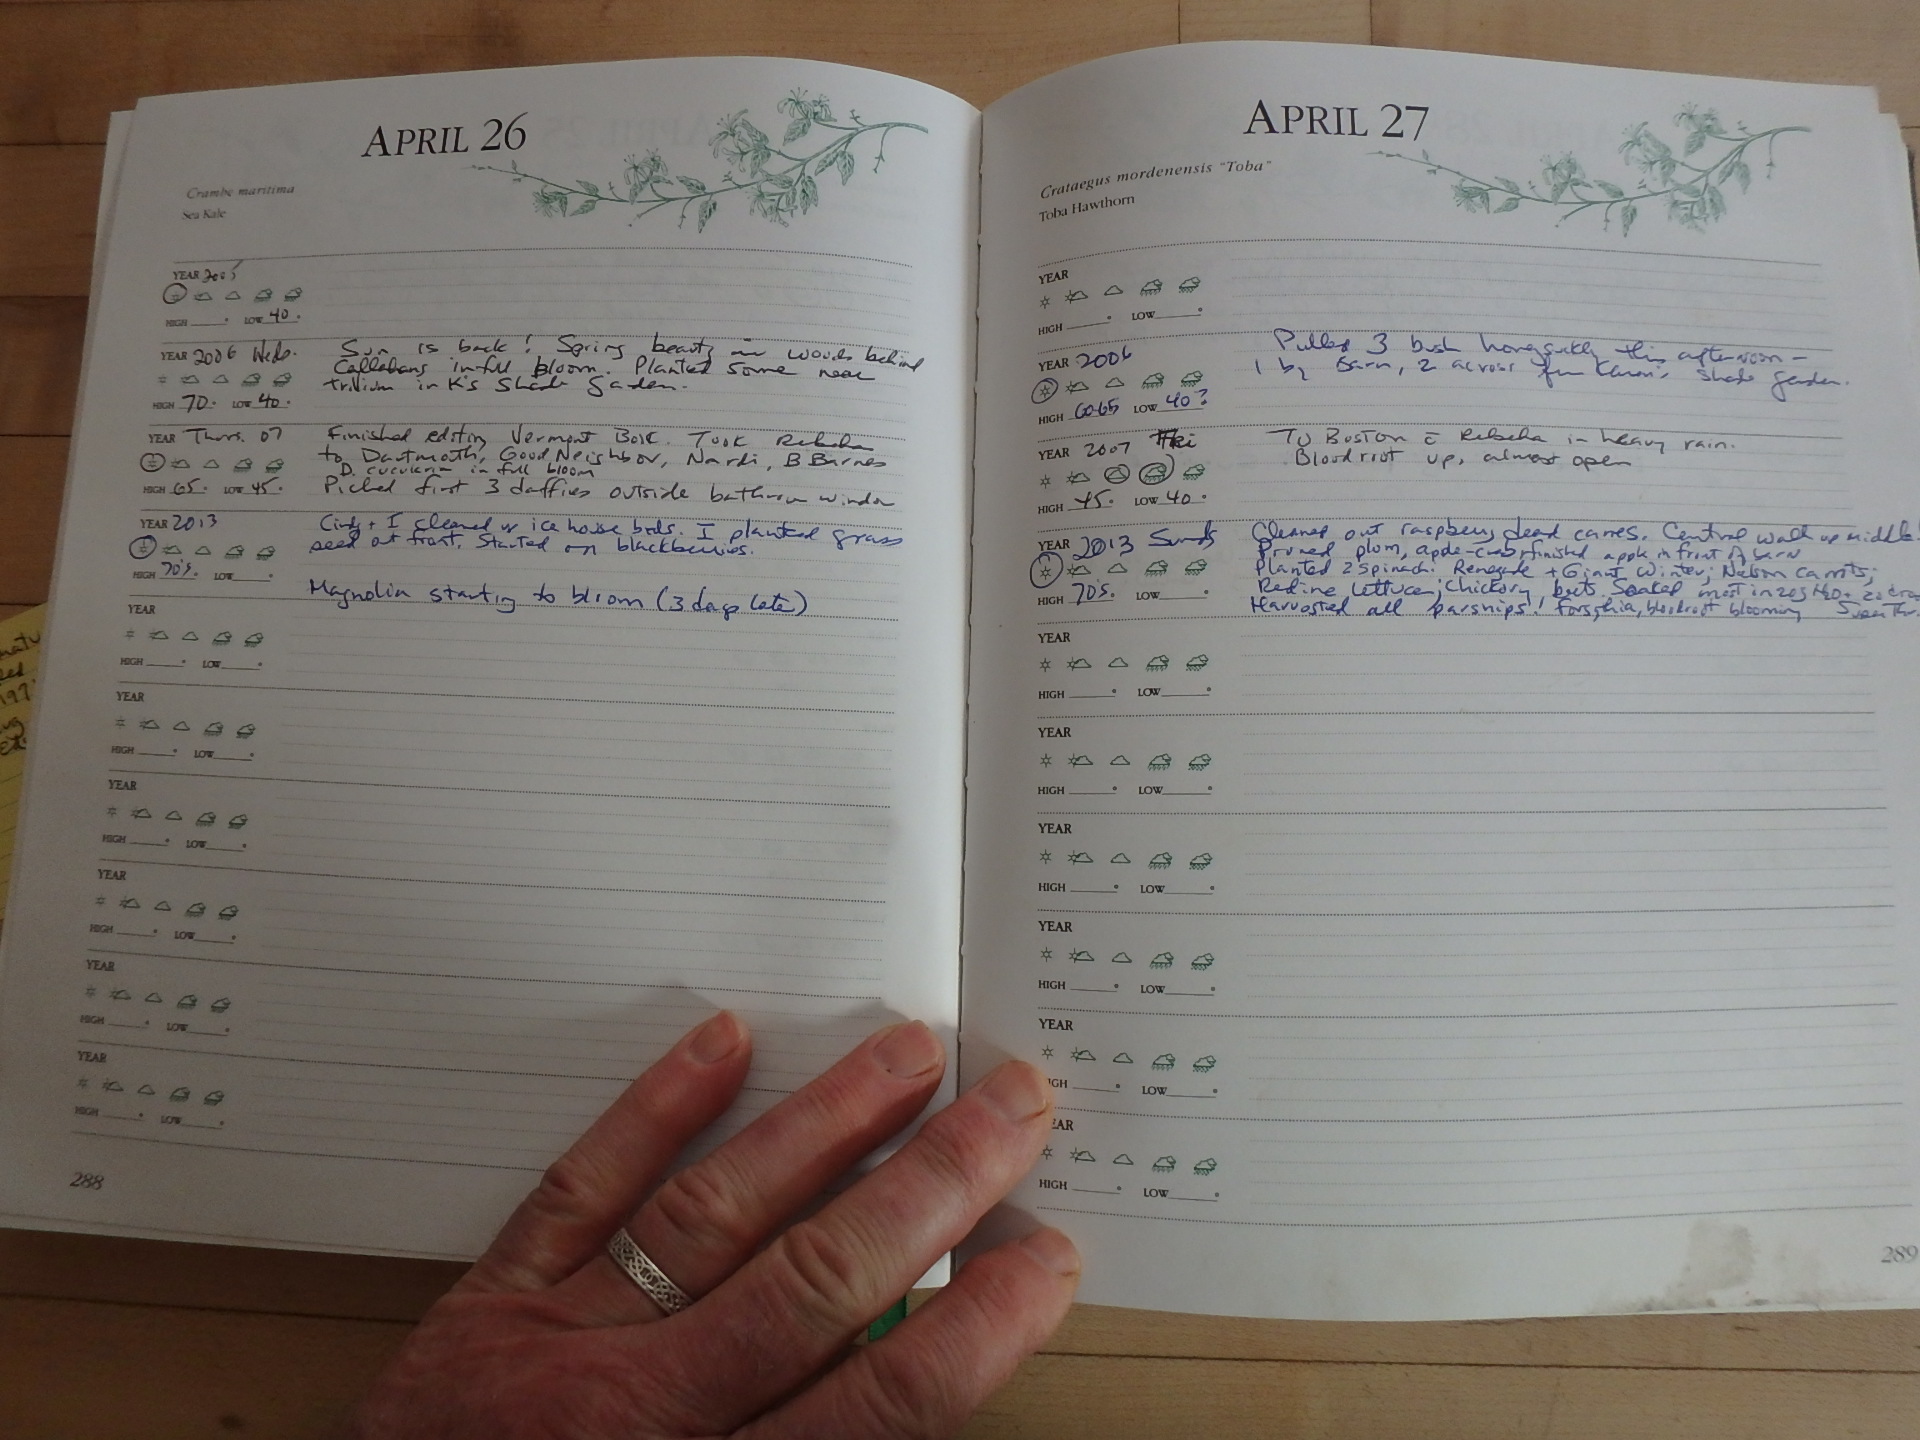 APRIL 26
Crambe maritima
Sea Kale
YEAR 2005
HIGH ° LOW 40°
YEAR 2006 Weds.
Sun is back! Spring beauty in woods behind
Callahans in full bloom. Planted some near
trillium in K's Shade Garden.
HIGH 70° LOW 40°
YEAR Thurs. 07
Finished editing Vermont Book. Took Rebecka
to Dartmouth, Good Neighbor, Nardi, B Barnes
D. cucullaria in full bloom
Picked first 3 daffies outside bathroom window
HIGH 65° LOW 45°
YEAR 2013
Cindy + I cleaned up ice house beds. I planted grass
seed out front. Started on blackberries.
HIGH 70's. LOW °
Magnolia starting to bloom (3 days late)
YEAR
HIGH ° LOW °
YEAR
HIGH ° LOW °
YEAR
HIGH ° LOW °
YEAR
HIGH ° LOW °
YEAR
HIGH ° LOW °
YEAR
HIGH ° LOW °
288
APRIL 27
Crataegus mordenensis "Toba"
Toba Hawthorn
YEAR
HIGH ° LOW °
YEAR 2006
Pulled 3 bush honeysuckly this afternoon -
1 by Barn, 2 across from Karen's shade garden.
HIGH 60-65 LOW 40?
YEAR 2007 Fri
To Boston c Rebecka in heavy rain.
Bloodroot up, almost open
HIGH 45° LOW 40°
YEAR 2013 Sunds
Cleaned out raspberry dead canes. Central walk up middle.
Pruned plum, apple-crab finished apple in front of barn
Planted 2 Spinach: Renegade + Giant Winter; Nelson carrots;
Redine lettuce; Chickory, beets. Soaked most in 20g H2O +
Harvested all parsnips! Forsythia, bloodroot blooming
HIGH 70's. LOW °
YEAR
HIGH ° LOW °
YEAR
HIGH ° LOW °
YEAR
HIGH ° LOW °
YEAR
HIGH ° LOW °
YEAR
IGH ° LOW °
EAR
HIGH ° LOW °
289